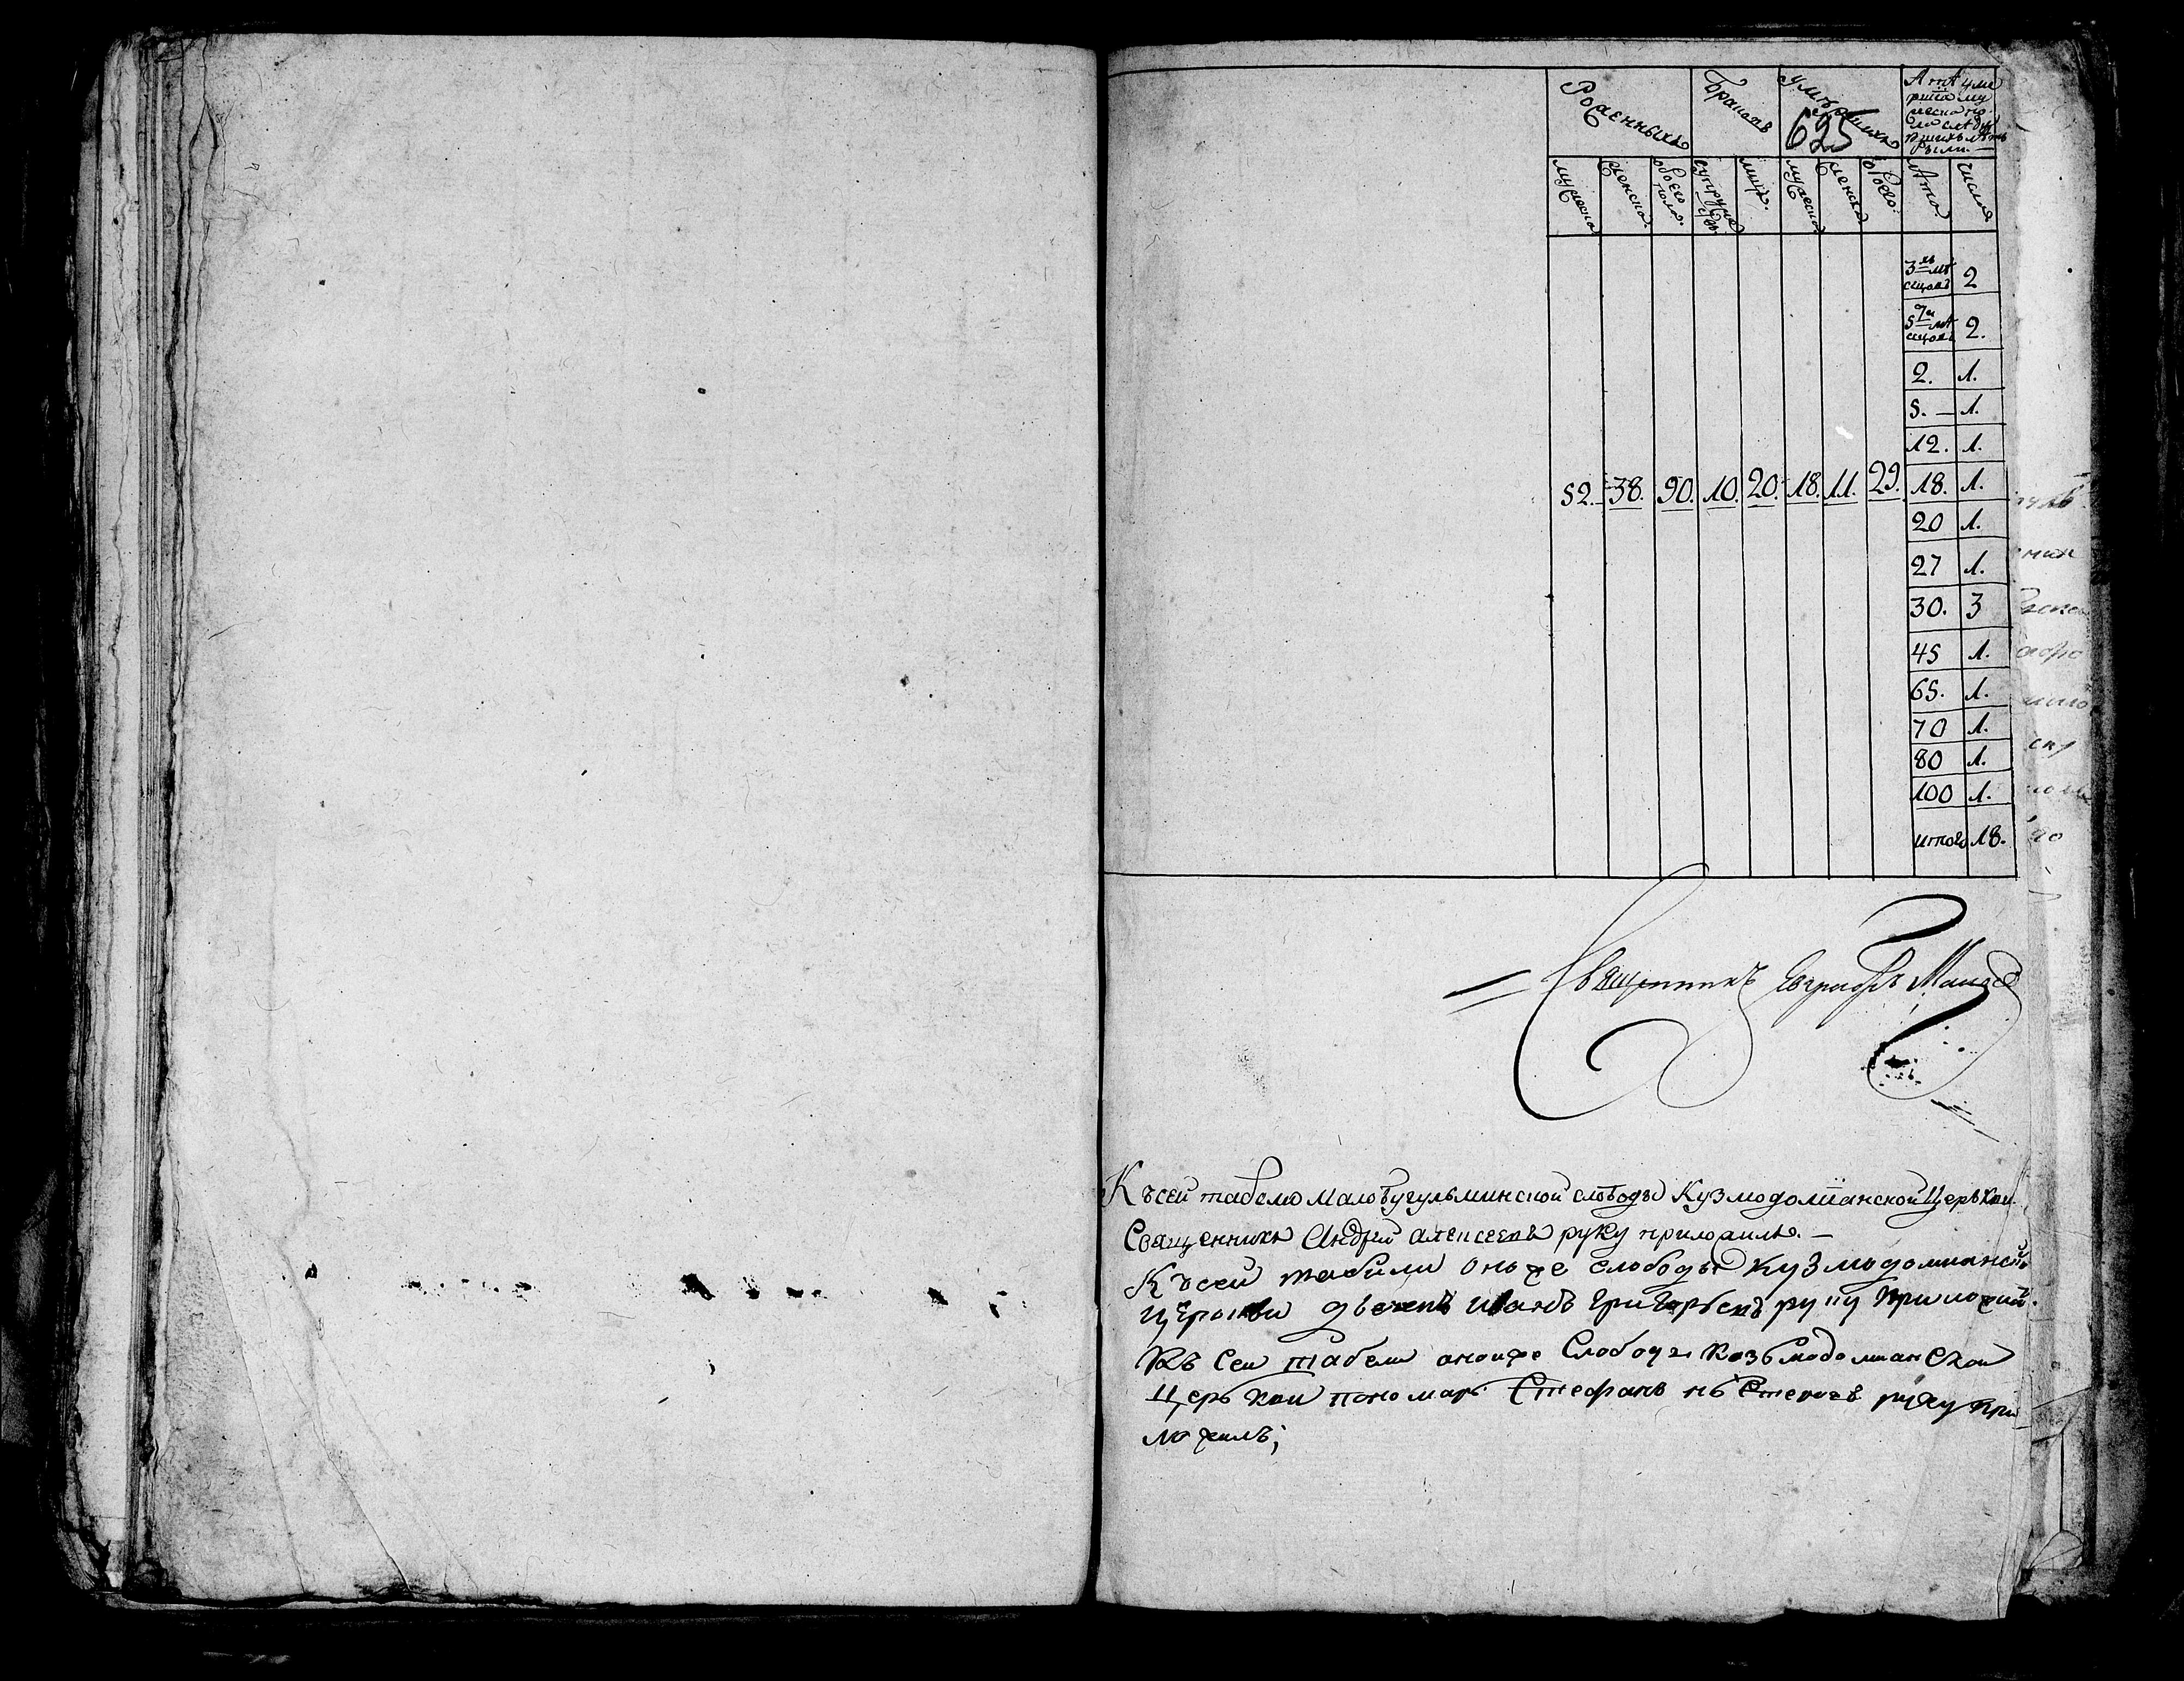 Рожденныхъ Браковъ Умершихъ
625
мужеска женска обоего пола супруже лицъ мужеска женска обоего Лѣта число
3хъ мѣ
сяцовъ 2
мѣ
сяцовъ 2.
2. 1.
5. — 1.
12. 1.
52. 38. 90. 10. 20. 18. 11. 29. 18. 1.
20 1.
27 1.
30. 3
45 1.
65. 1.
70 1.
80 1.
100 1.
итого 18.
Священникъ Евграфъ
Къ сей табели малобугульминской слободы Кузмодомианской Церькви
Священникъ Андрей Алексеевъ руку приложилъ. —
Къ сей табели оной же слободы кузмодомианской
церкви дьячекъ Иванъ Григорьевъ руку приложилъ.
Къ сей табели оной же Слободы козьмодомианской
Церькви пономарь Стефанъ руку при
ложилъ;